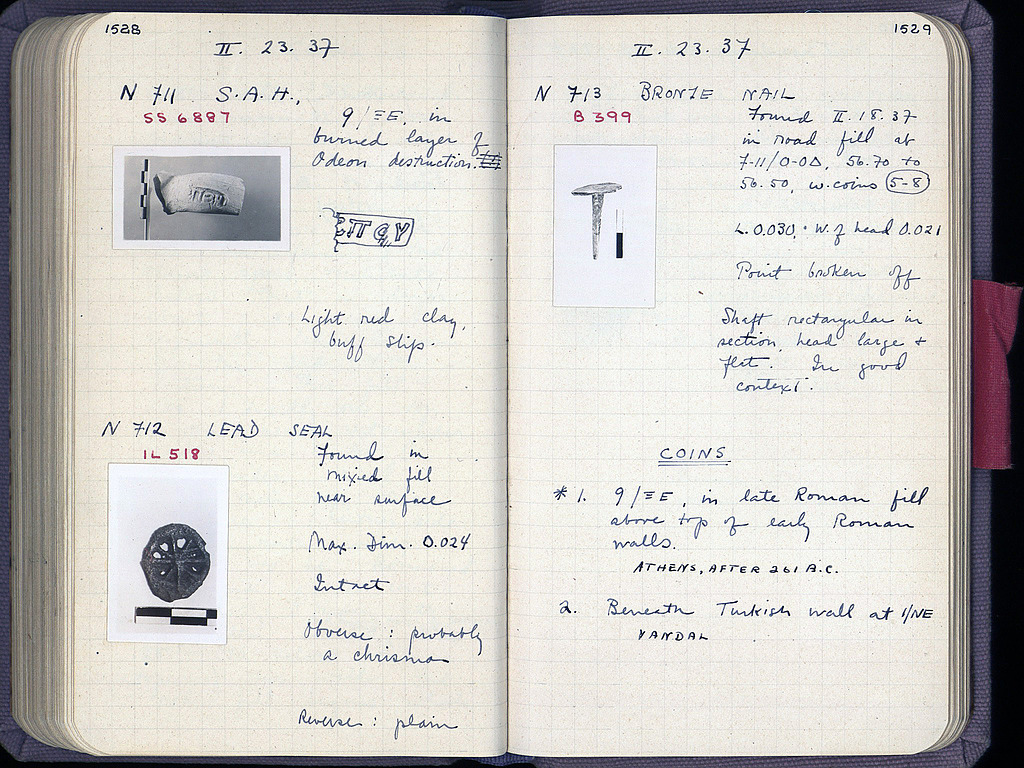 1528
II. 23. 37
N 711 S.A.H.,
SS 6887
9/ΞE, in
burned layer of
Odeon destruction.
ΠCY
Light red clay,
buff slip.
N 712 LEAD SEAL
IL 518
Found in
mixed fill
near surface
Max. Dim. 0.024
Intact
Obverse: probably
a chrisma
Reverse: plain
1529
II. 23. 37
N 713 BRONZE NAIL
B 399
Found II. 18. 37
in road fill at
7-11/O-OΔ, 56.70 to
56.50, w. coins 5-8
L. 0.030, W. of head 0.021
Point broken off
Shaft rectangular in
section, head large +
flat. In good
context.
COINS
* 1. 9/ΞE, in late Roman fill
above top of early Roman
walls.
ATHENS, AFTER 261 B.C.
2. Beneath Turkish wall at 1/NE
VANDAL